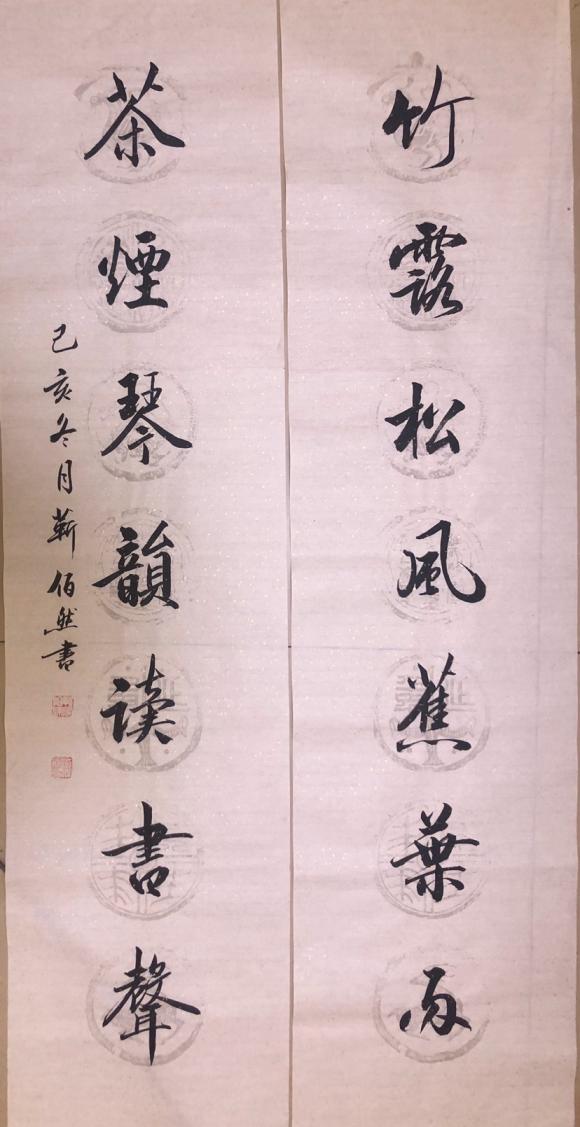 竹露松風蕉葉雨
茶煙琴韻读書聲
己亥冬月蕲佰然書